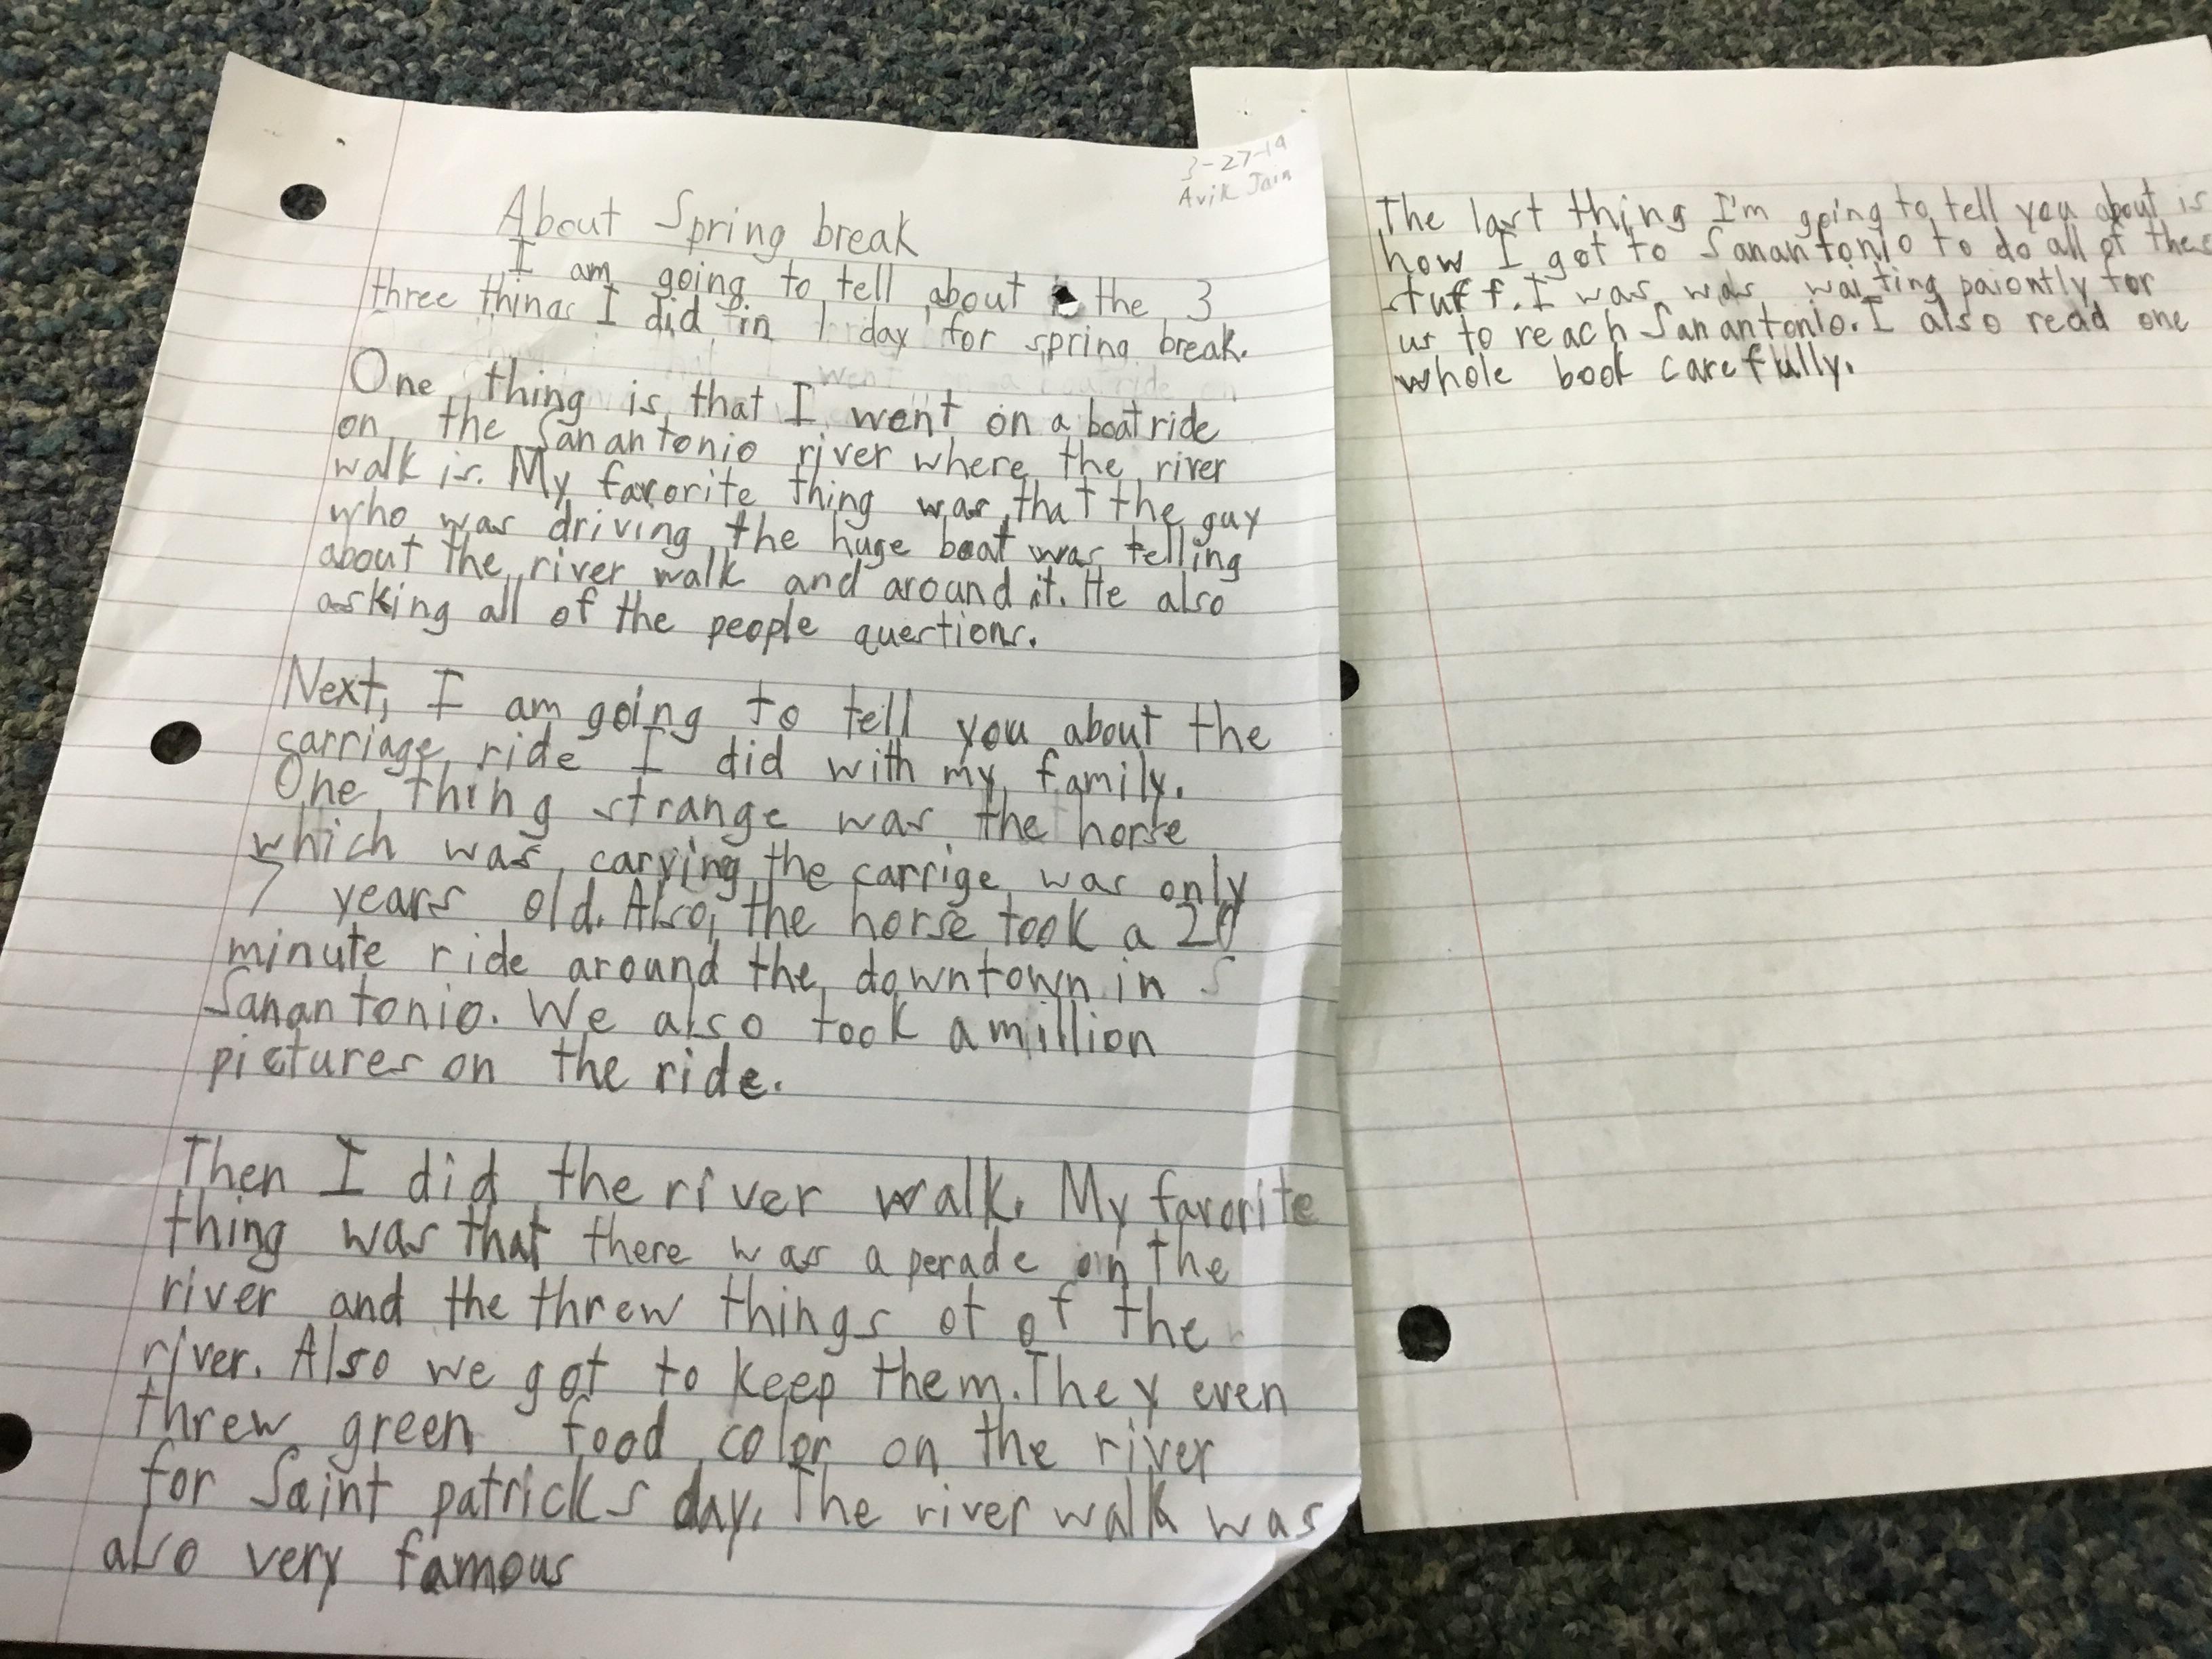 3-27-19
Avik Jain
About Spring break
I am going to tell about the 3
three things I did in 1 day for spring break.
One thing is that I went on a boat ride
on the Sanantonio river where the river
walk is. My favorite thing was that the guy
who was driving the huge boat was telling
about the river walk and around it. He also
asking all of the people questions.
Next, I am going to tell you about the
carriage ride I did with my family.
One thing strange was the horse
which was carying the carrige was only
7 years old. Also, the horse took a 20
minute ride around the downtown in
Sanantonio. We also took a million
pictures on the ride.
Then I did the river walk. My favorite
thing was that there was a perade on the
river and the threw things ot of the
river. Also we got to keep them. They even
threw green food color on the river
for Saint patricks day. The river walk was
also very famous
The last thing I'm going to tell you about is
how I got to Sanantonio to do all of thes
stuff. I was was waiting paiontly for
us to reach Sanantonio. I also read one
whole book carefully.